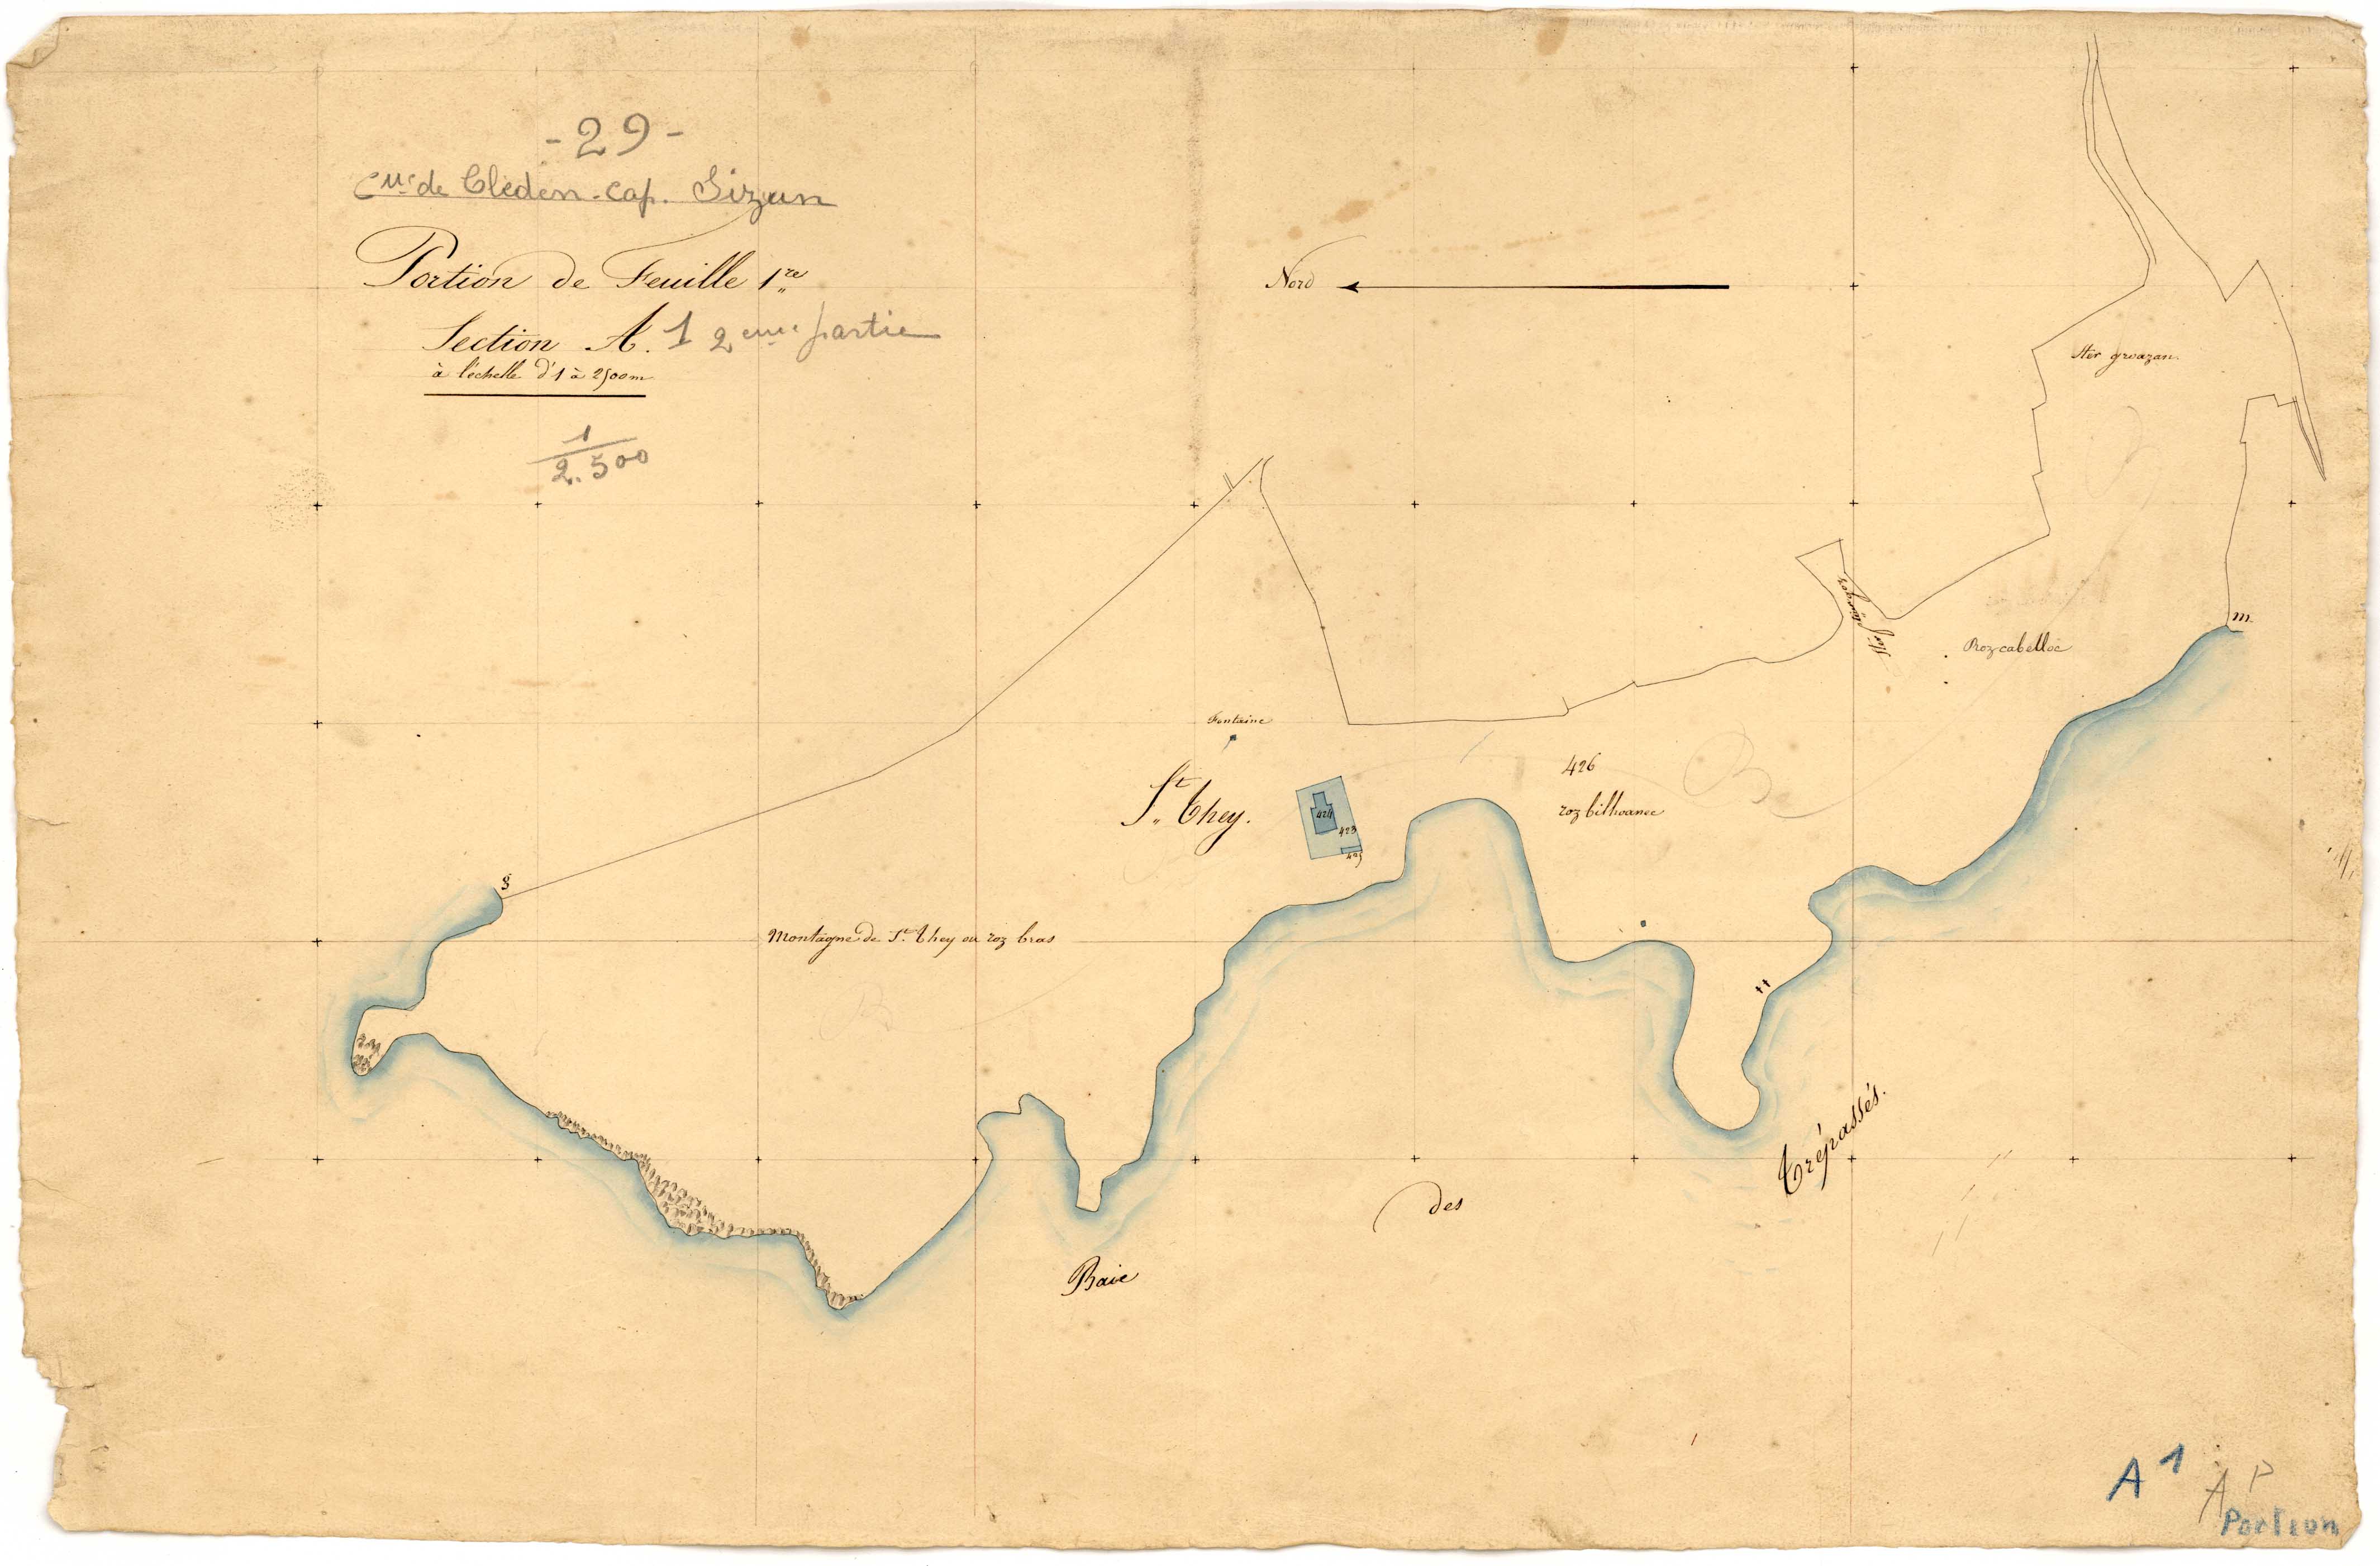 - 29 -
Cne de Cleden-Cap. Sizun
Portion de Feuille 1re
Section A. 1 2eme partie
à l'échelle d'1 à 2500m
1
2.500
Nord
Ster groazan
m
Rozcabelloc
Fontaine
St. They.
424
423
425
426
roz bilhoanec
g
Montagne de St. They ou roz bras
B
B
Baie
des
Trépassés.
A 1
A P
Portion